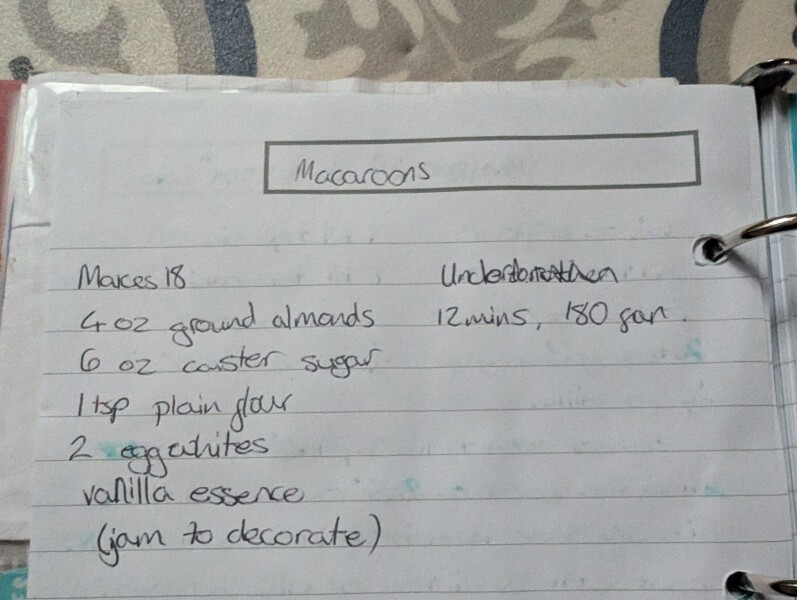 Macaroons
Makes 18
4 oz ground almonds
6 oz caster sugar
1 tsp plain flour
2 egg whites
vanilla essence
(jam to decorate)
12 mins, 180 fan.